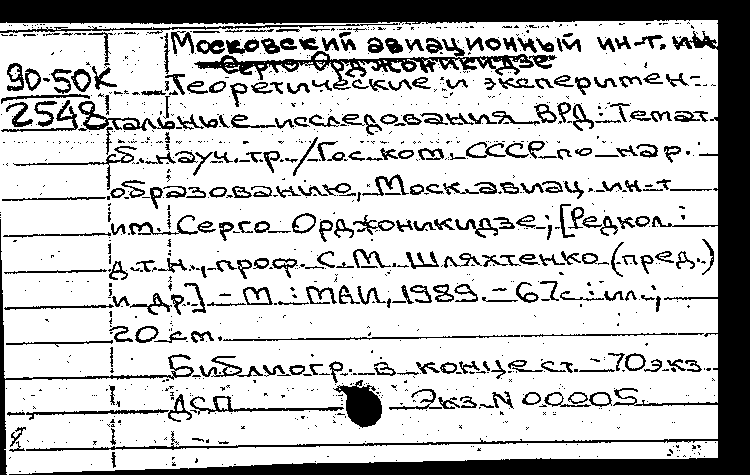 Московский авиационный ин-т. им.
Серго Орджоникидзе
90-50К Теоретические и эксперимен-
2548 тальные исследования ВРД: Темат.
сб. науч. тр. / Гос. ком. СССР по нар.
образованию, Моск. авиац. ин-т
им. Серго Орджоникидзе; [Редкол.:
д.т.н., проф. С.М. Шляхтенко (пред.)
и др.] - М.: МАИ, 1989. - 67с.: ил.;
20 см.
Библиогр. в конце ст. - 70 экз
ДСП Экз. N 00005.